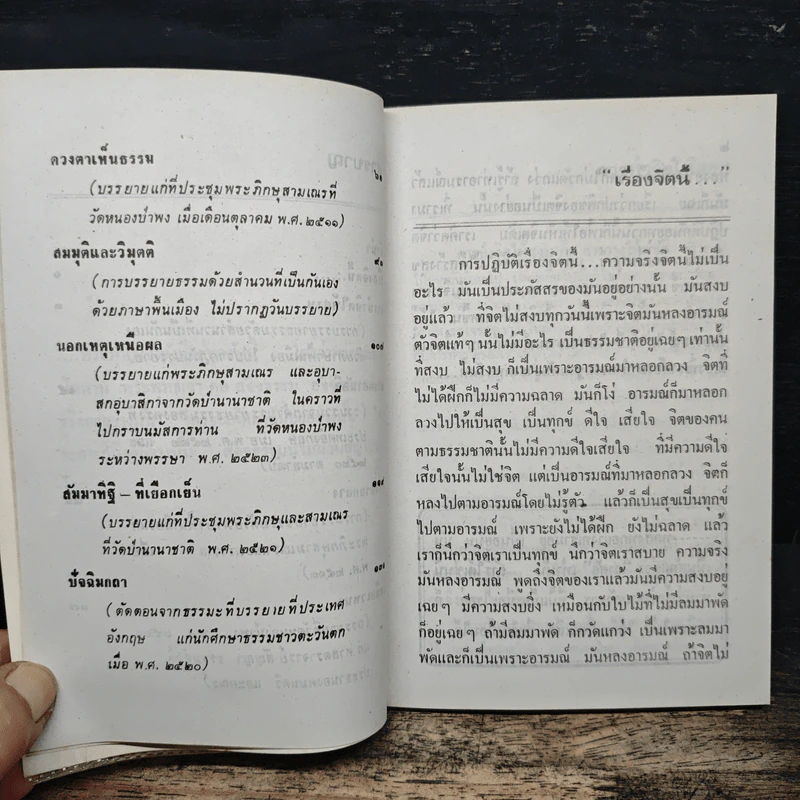 ดวงตาเห็นธรรม
(บรรยายแก่ที่ประชุมพระภิกษุสามเณรที่
วัดหนองป่าพง เมื่อเดือนตุลาคม พ.ศ. ๒๕๑๑)
สมมุติและวิมุตติ
(การบรรยายธรรมด้วยสำนวนที่เป็นกันเอง
ด้วยภาษาพื้นเมือง ไม่ปรากฏวันบรรยาย)
นอกเหตุเหนือผล
(บรรยายแก่พระภิกษุสามเณร และอุบา-
สกอุบาสิกาจากวัดป่านานาชาติ ในคราวที่
ไปกราบนมัสการท่าน ที่วัดหนองป่าพง
ระหว่างพรรษา พ.ศ. ๒๕๒๓)
สัมมาทิฐิ – ที่เยือกเย็น
(บรรยายแก่ที่ประชุมพระภิกษุและสามเณร
ที่วัดป่านานาชาติ พ.ศ. ๒๕๒๑)
ปัจฉิมกถา
(ตัดตอนจากธรรมะที่บรรยายที่ประเทศ
อังกฤษ แก่นักศึกษาธรรมชาวตะวันตก
เมื่อ พ.ศ. ๒๕๒๐)
“เรื่องจิตนี้...”
การปฏิบัติเรื่องจิตนี้...ความจริงจิตนี้ไม่เป็น
อะไร มันเป็นประภัสสรของมันอยู่อย่างนั้น มันสงบ
อยู่แล้ว ที่จิตไม่สงบทุกวันนี้เพราะจิตมันหลงอารมณ์
ตัวจิตแท้ๆ นั้นไม่มีอะไร เป็นธรรมชาติอยู่เฉยๆ เท่านั้น
ที่สงบ ไม่สงบ ก็เป็นเพราะอารมณ์มาหลอกลวง จิตที่
ไม่ได้ฝึกก็ไม่มีความฉลาด มันก็โง่ อารมณ์ก็มาหลอก
ลวงไปให้เป็นสุข เป็นทุกข์ ดีใจ เสียใจ จิตของคน
ตามธรรมชาตินั้นไม่มีความดีใจเสียใจ ที่มีความดีใจ
เสียใจนั้นไม่ใช่จิต แต่เป็นอารมณ์ที่มาหลอกลวง จิตก็
หลงไปตามอารมณ์โดยไม่รู้ตัว แล้วก็เป็นสุขเป็นทุกข์
ไปตามอารมณ์ เพราะยังไม่ได้ฝึก ยังไม่ฉลาด แล้ว
เราก็นึกว่าจิตเราเป็นทุกข์ นึกว่าจิตเราสบาย ความจริง
มันหลงอารมณ์ พูดถึงจิตของเราแล้วมันมีความสงบอยู่
เฉยๆ มีความสงบยิ่ง เหมือนกับใบไม้ที่ไม่มีลมมาพัด
ก็อยู่เฉยๆ ถ้ามีลมมาพัด ก็กวัดแกว่ง เป็นเพราะลมมา
พัดและก็เป็นเพราะอารมณ์ มันหลงอารมณ์ ถ้าจิตไม่